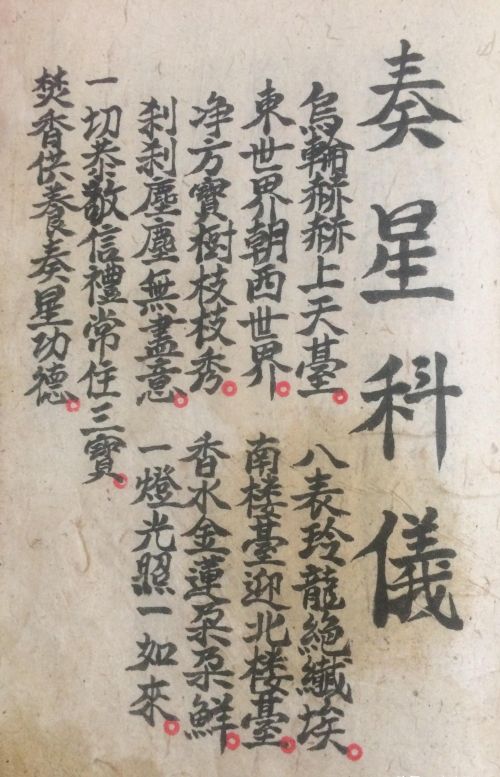 奏星科儀
烏輪赫赫上天臺。八表玲龍絕纖埃。
東世界朝西世界。南楼臺迎北楼臺。
净方寶樹枝枝秀。香水金蓮朶朶鮮。
刹刹塵塵無盡意。一燈光照一如來。
一切恭敬信禮常住三寶。
焚香供養奏星功德。